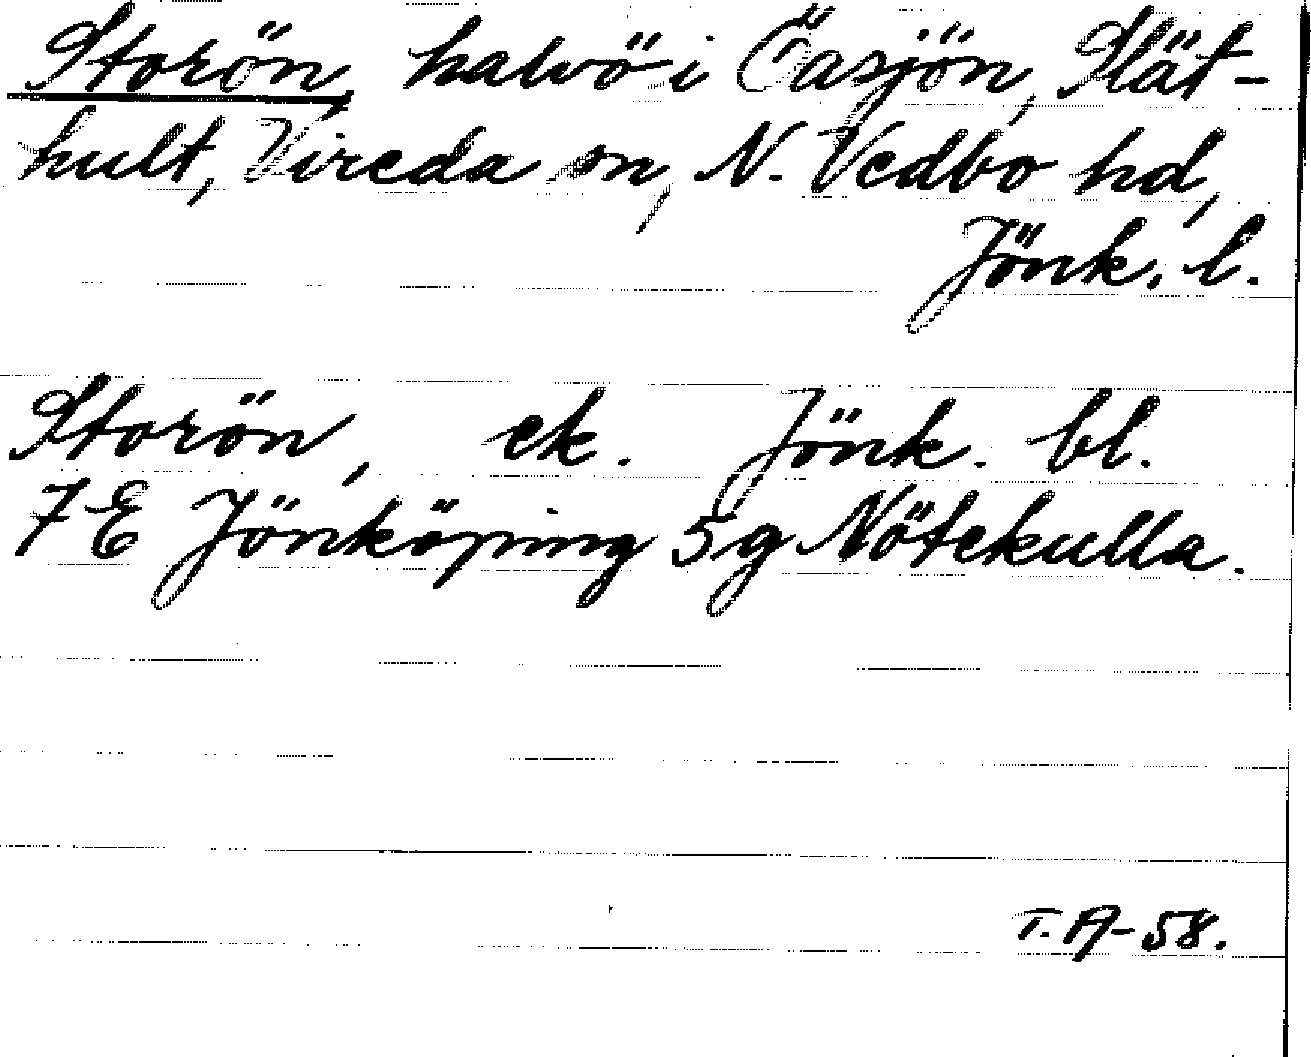 Storön, halvö i Öasjön, Slät-
hult, Vireda sn, N. Vedbo hd,
Jönk. l.
Storön, ek. Jönk. bl.
7 E Jönköping 5g Nötekulla.
T. A-58.